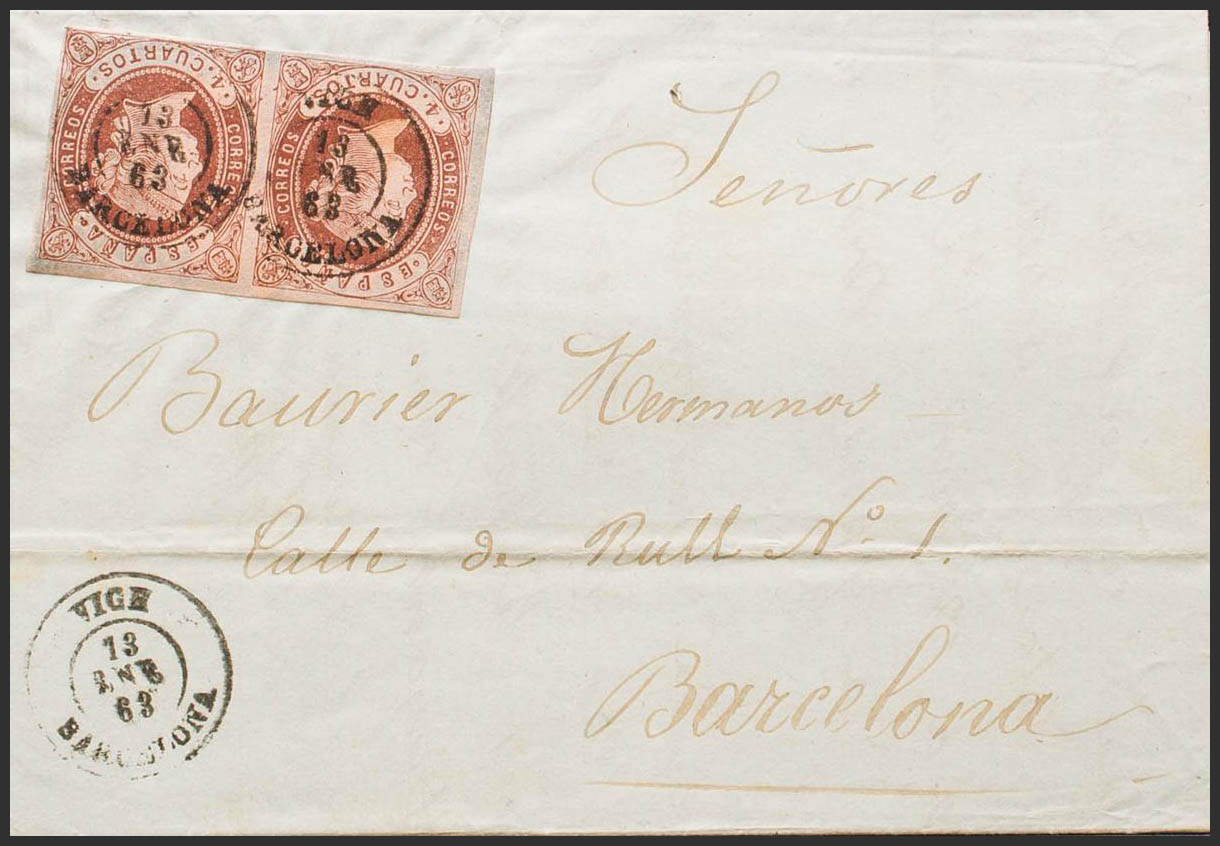 4. CUARTOS.
CORREOS.
CORREOS.
ESPAÑA
13
ENE
63
BARCELONA
4. CUARTOS.
CORREOS.
CORREOS.
ESPAÑA
VICH
13
ENE
63
BARCELONA
Señores
Baurier Hermanos
Calle de Rull Nº 1.
Barcelona
VICH
13
ENE
63
BARCELONA